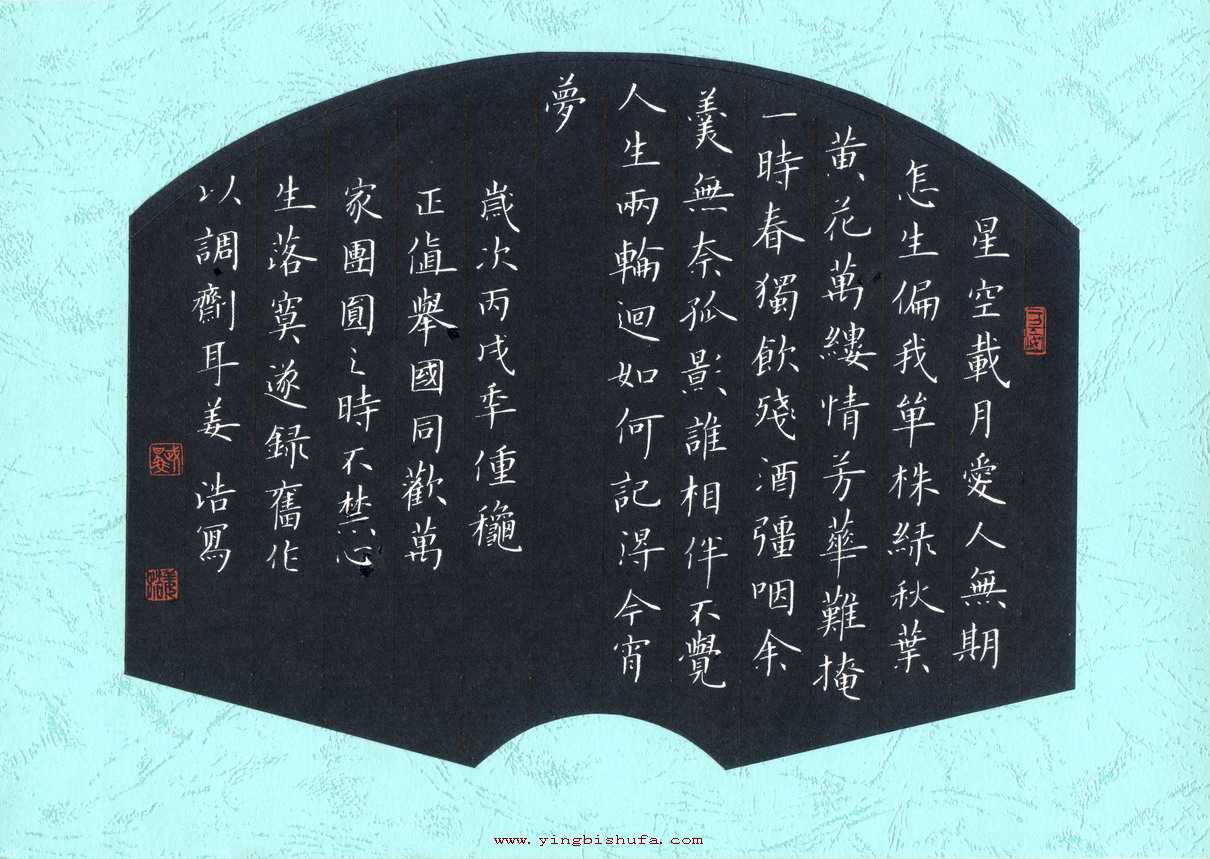 星空載月愛人無期
怎生偏我單株緑秋葉
黄花萬縷情芳華難掩
一時春獨飲殘酒彊咽余
羹無奈孤影誰相伴不覺
人生兩輪迴如何記得今宵
夢
歲次丙戌秊偅穐
正值舉國同歡萬
家團圓之時不禁心
生落寞遂録舊作
以調劑耳姜 浩寫
www.yingbishufa.com